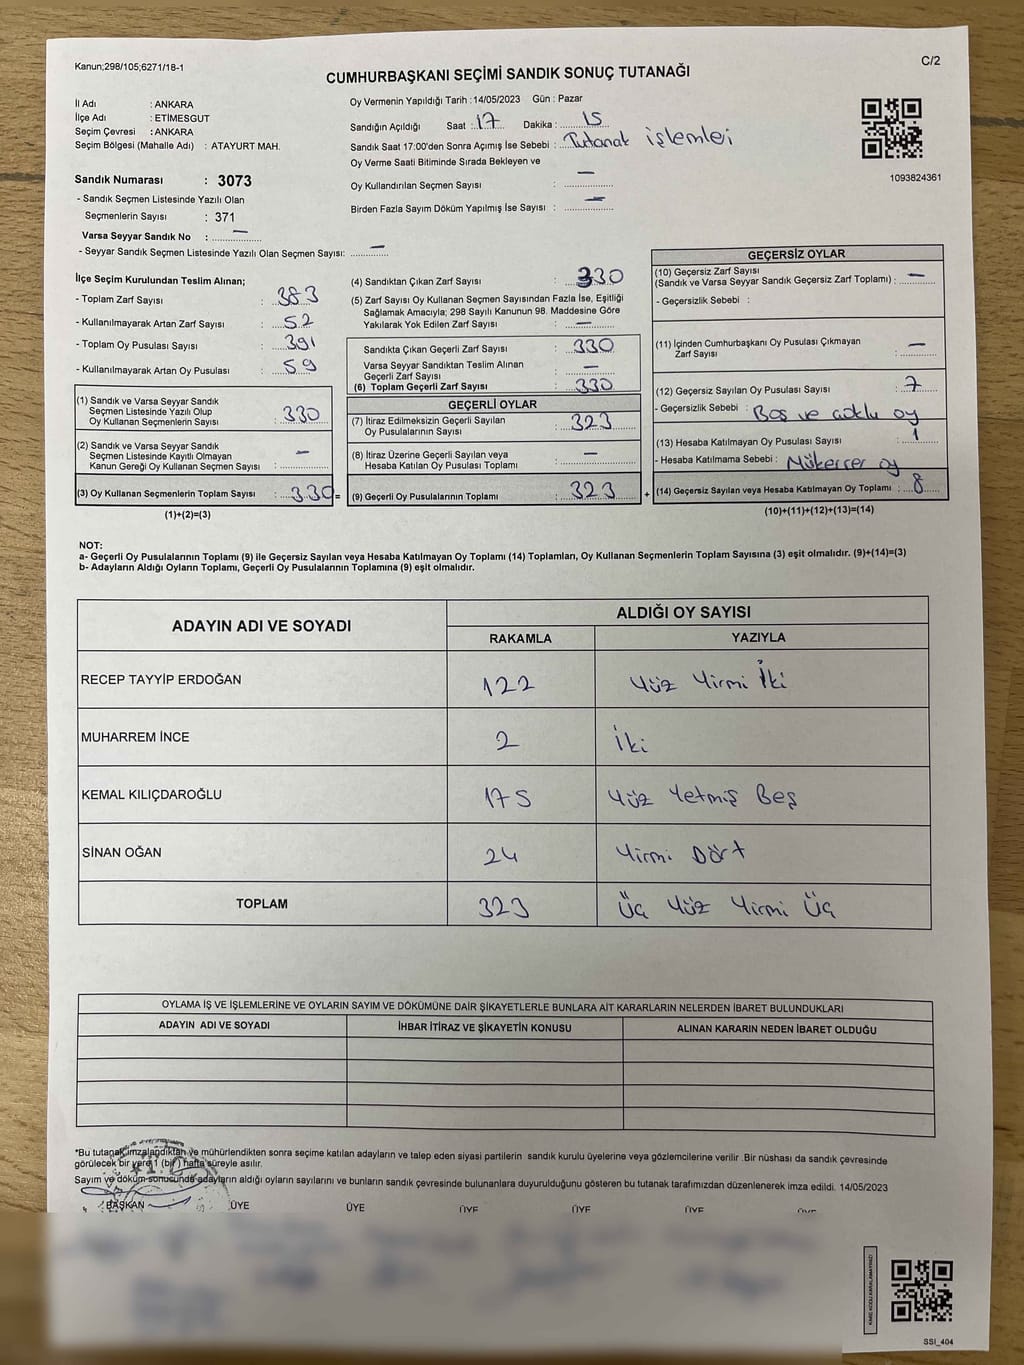 Kanun;298/105;6271/18-1
C/2
CUMHURBAŞKANI SEÇİMİ SANDIK SONUÇ TUTANAĞI
İl Adı : ANKARA
İlçe Adı : ETİMESGUT
Seçim Çevresi : ANKARA
Seçim Bölgesi (Mahalle Adı) : ATAYURT MAH.
Oy Vermenin Yapıldığı Tarih :14/05/2023 Gün : Pazar
Sandığın Açıldığı Saat : 17 Dakika : 15
Sandık Saat 17:00'den Sonra Açımış İse Sebebi : Tutanak işlemleri
Oy Verme Saati Bitiminde Sırada Bekleyen ve
Oy Kullandırılan Seçmen Sayısı : —
Birden Fazla Sayım Döküm Yapılmış İse Sayısı : —
1093824361
Sandık Numarası : 3073
- Sandık Seçmen Listesinde Yazılı Olan
Seçmenlerin Sayısı : 371
Varsa Seyyar Sandık No : —
- Seyyar Sandık Seçmen Listesinde Yazılı Olan Seçmen Sayısı: —
İlçe Seçim Kurulundan Teslim Alınan;
- Toplam Zarf Sayısı : 383
- Kullanılmayarak Artan Zarf Sayısı : 52
- Toplam Oy Pusulası Sayısı : 391
- Kullanılmayarak Artan Oy Pusulası : 59
(1) Sandık ve Varsa Seyyar Sandık
Seçmen Listesinde Yazılı Olup
Oy Kullanan Seçmenlerin Sayısı : 330
(2) Sandık ve Varsa Seyyar Sandık
Seçmen Listesinde Kayıtlı Olmayan
Kanun Gereği Oy Kullanan Seçmen Sayısı : —
(3) Oy Kullanan Seçmenlerin Toplam Sayısı : 330 =
(1)+(2)=(3)
(4) Sandıktan Çıkan Zarf Sayısı : 330
(5) Zarf Sayısı Oy Kullanan Seçmen Sayısından Fazla İse, Eşitliği
Sağlamak Amacıyla; 298 Sayılı Kanunun 98. Maddesine Göre
Yakılarak Yok Edilen Zarf Sayısı : —
Sandıkta Çıkan Geçerli Zarf Sayısı : 330
Varsa Seyyar Sandıktan Teslim Alınan
Geçerli Zarf Sayısı : —
(6) Toplam Geçerli Zarf Sayısı : 330
GEÇERLİ OYLAR
(7) İtiraz Edilmeksizin Geçerli Sayılan
Oy Pusulalarının Sayısı : 323
(8) İtiraz Üzerine Geçerli Sayılan veya
Hesaba Katılan Oy Pusulası Toplamı : —
(9) Geçerli Oy Pusulalarının Toplamı : 323 +
GEÇERSİZ OYLAR
(10) Geçersiz Zarf Sayısı
(Sandık ve Varsa Seyyar Sandık Geçersiz Zarf Toplamı) : —
- Geçersizlik Sebebi :
(11) İçinden Cumhurbaşkanı Oy Pusulası Çıkmayan
Zarf Sayısı : —
(12) Geçersiz Sayılan Oy Pusulası Sayısı : 7
- Geçersizlik Sebebi : Boş ve çoklu oy
(13) Hesaba Katılmayan Oy Pusulası Sayısı : 1
- Hesaba Katılmama Sebebi : Mükerrer oy
(14) Geçersiz Sayılan veya Hesaba Katılmayan Oy Toplamı : 8
(10)+(11)+(12)+(13)=(14)
NOT:
a- Geçerli Oy Pusulalarının Toplamı (9) ile Geçersiz Sayılan veya Hesaba Katılmayan Oy Toplamı (14) Toplamları, Oy Kullanan Seçmenlerin Toplam Sayısına (3) eşit olmalıdır. (9)+(14)=(3)
b- Adayların Aldığı Oyların Toplamı, Geçerli Oy Pusulalarının Toplamına (9) eşit olmalıdır.
ADAYIN ADI VE SOYADI
ALDIĞI OY SAYISI
RAKAMLA YAZIYLA
RECEP TAYYİP ERDOĞAN 122 Yüz Yirmi İki
MUHARREM İNCE 2 İki
KEMAL KILIÇDAROĞLU 175 Yüz Yetmiş Beş
SİNAN OĞAN 24 Yirmi Dört
TOPLAM 323 Üç Yüz Yirmi Üç
OYLAMA İŞ VE İŞLEMLERİNE VE OYLARIN SAYIM VE DÖKÜMÜNE DAİR ŞİKAYETLERLE BUNLARA AİT KARARLARIN NELERDEN İBARET BULUNDUKLARI
ADAYIN ADI VE SOYADI İHBAR İTİRAZ VE ŞİKAYETİN KONUSU ALINAN KARARIN NEDEN İBARET OLDUĞU
*Bu tutanak imzalandıktan ve mühürlendikten sonra seçime katılan adayların ve talep eden siyasi partilerin sandık kurulu üyelerine veya gözlemcilerine verilir .Bir nüshası da sandık çevresinde
görülecek bir yere 1 (bir) hafta süreyle asılır.
Sayım ve döküm sonucunda adayların aldığı oyların sayılarını ve bunların sandık çevresinde bulunanlara duyurulduğunu gösteren bu tutanak tarafımızdan düzenlenerek imza edildi. 14/05/2023
BAŞKAN ÜYE ÜYE ÜYE ÜYE ÜYE ÜYE
T.C.
SSI_404